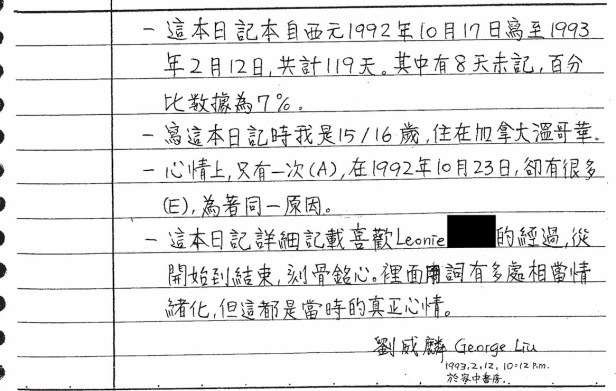 - 這本日記本自西元1992年10月17日寫至1993
年2月12日,共計119天。其中有8天未記,百分
比數據為7%。
- 寫這本日記時我是15/16歲,住在加拿大溫哥華.
- 心情上,只有一次(A),在1992年10月23日,卻有很多
(E),為著同一原因。
- 這本日記詳細記載喜歡Leonie 的經過,從
開始到結束,刻骨銘心。裡面用詞有多處相當情
緒化,但這都是當時的真正心情。
劉威麟 George Liu
1993,2,12, 10:12 P.m.
於家中書房.